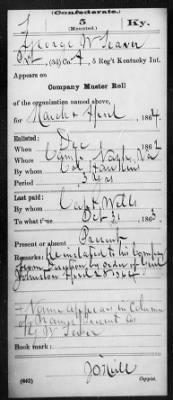 (Confederate.)
5 Ky.
(Mounted.)
George W Seaver
Pvt, (3d) Co. A, 5 Reg't Kentucky Inf.
Appears on
Company Muster Roll
of the organization named above,
for March & April, 1864.
Enlisted:
When Dec, 1862
Where Camp Nash, Va
By whom Col. Hawkins
Period 3 yrs
Last paid:
By whom Capt Wells
To what time Oct 31, 1863.
Present or absent Present
Remarks: Reinstated to his Company
from desertion by order of Genl
Johnston April 28 1864
+ Name appears in column
of Names present as
G. W. Sever
Book mark:
(642)
Copyist.